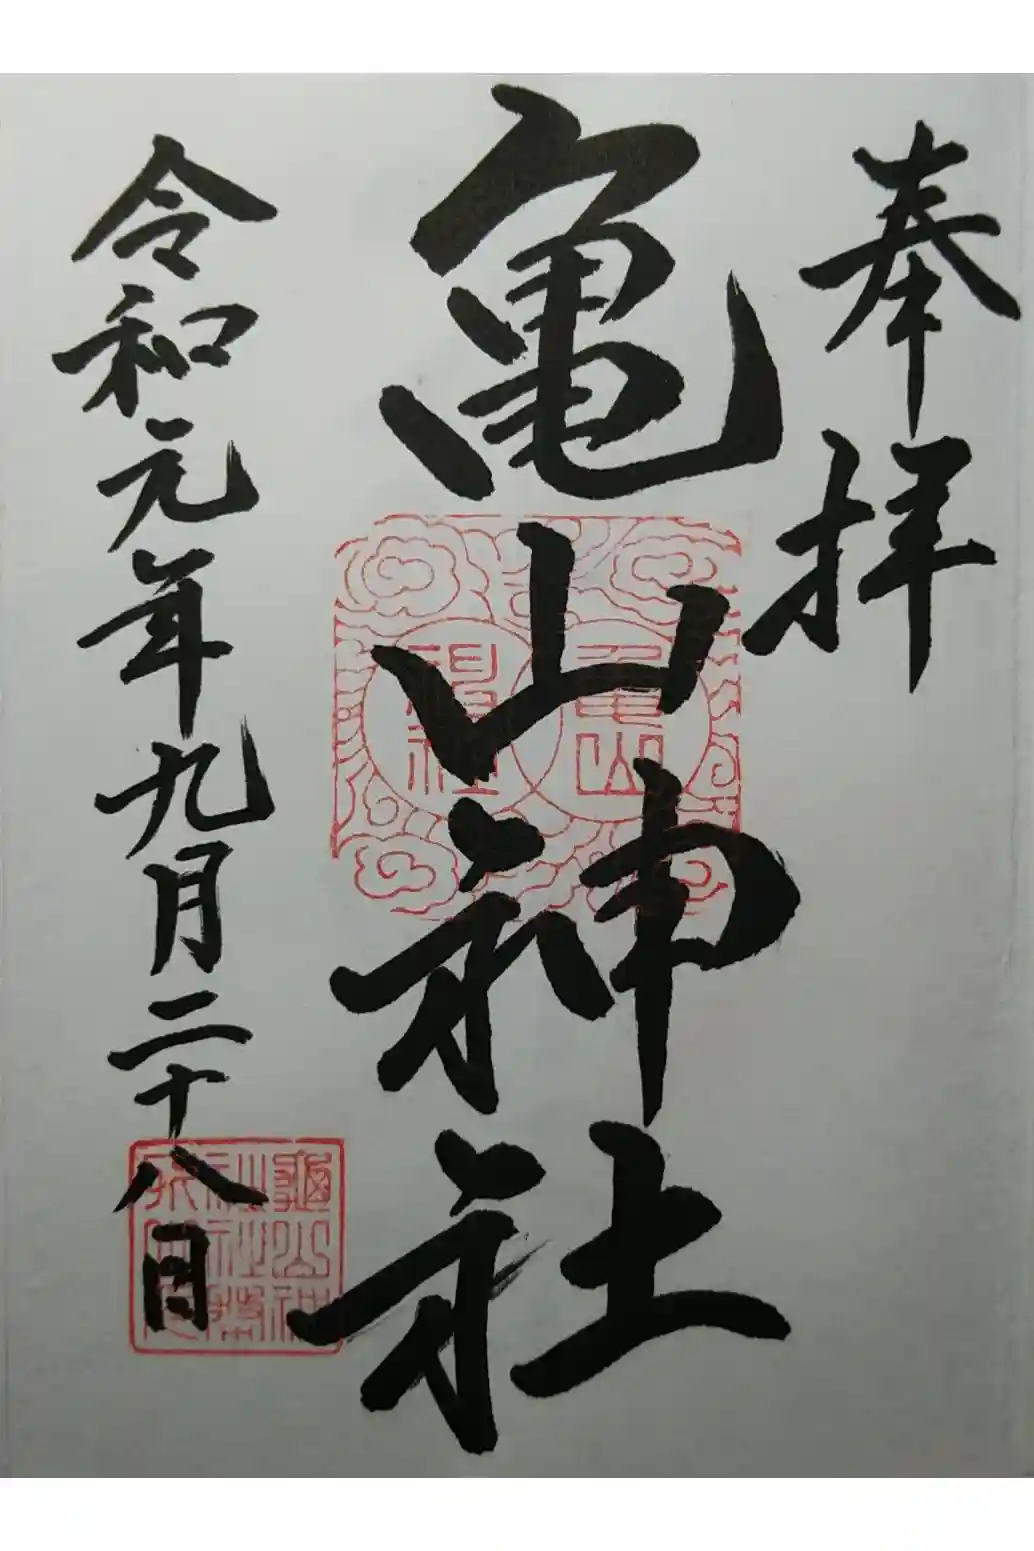 奉拝
亀山神社
令和元年九月二十八日
亀山
神社